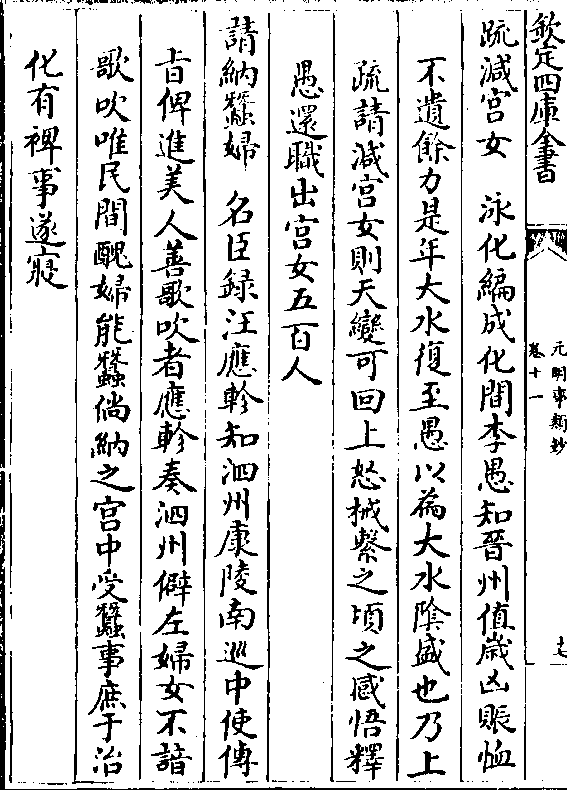 欽定四庫全書
元明事類鈔
卷十一
疏減宮女　泳化編成化間李愚知晉州值歲凶賑恤
不遺餘力是年大水復至愚以為大水陰盛也乃上
疏請減宮女則天變可回上怒械繫之頃之感悟釋
愚還職出宮女五百人
請納蠶婦　名臣録汪應軫知泗州康陵南巡中使傳
旨俾進美人善歌吹者應軫奏泗州僻左婦女不諳
歌吹唯民間醜婦能蠶倘納之宮中受蠶事庶于治
化有裨事遂寢